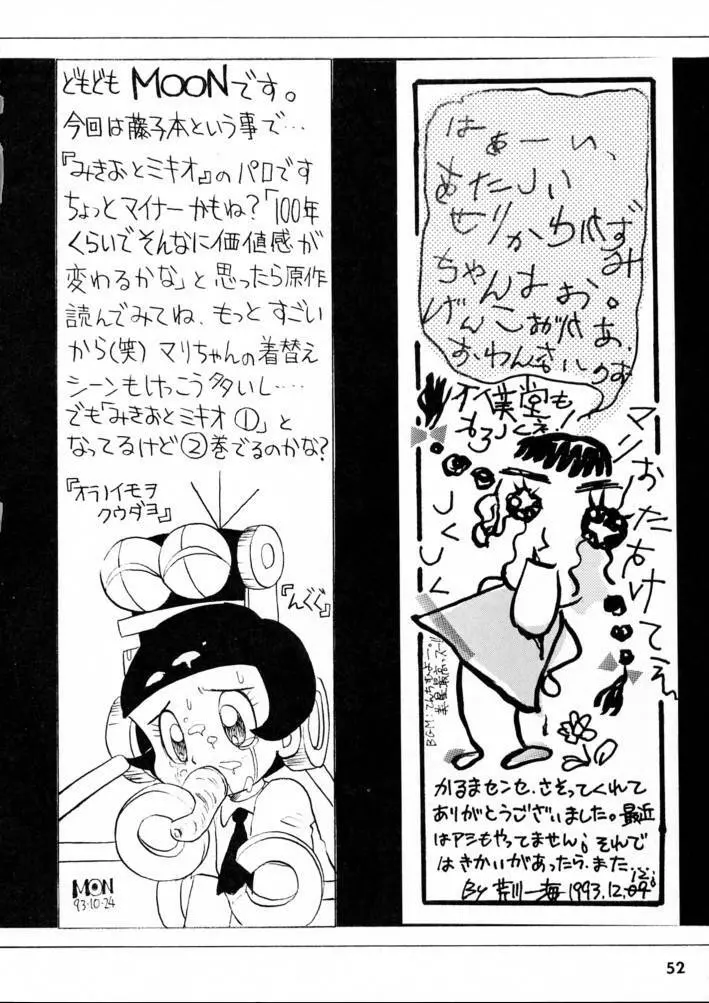 どもども MOONです。
今回は藤子本という事で…
『みきおとミキオ』のパロです
ちょっとマイナーかもね?「100年
くらいでそんなに価値感が
変わるかな」と思ったら原作
読んでみてね、もっとすごい
から(笑) マリちゃんの着替え
シーンもけっこう多いし……
でも「みきおとミキオ①」と
なってるけど②巻でるのかな?
『オラノイモヲ
クウダヨ』
『んぐぐ』
MOON
93・10・24
はぁーい、
あたしい
せりかわはずみ
ちゃんよぉ。
マリおたすけてぇ
しくしく
かるまセンセ、さそってくれて
ありがとうございました。最近
はアシもやってません；それで
はきかいがあったら、また。
By 芹川一海 1993.12.
52